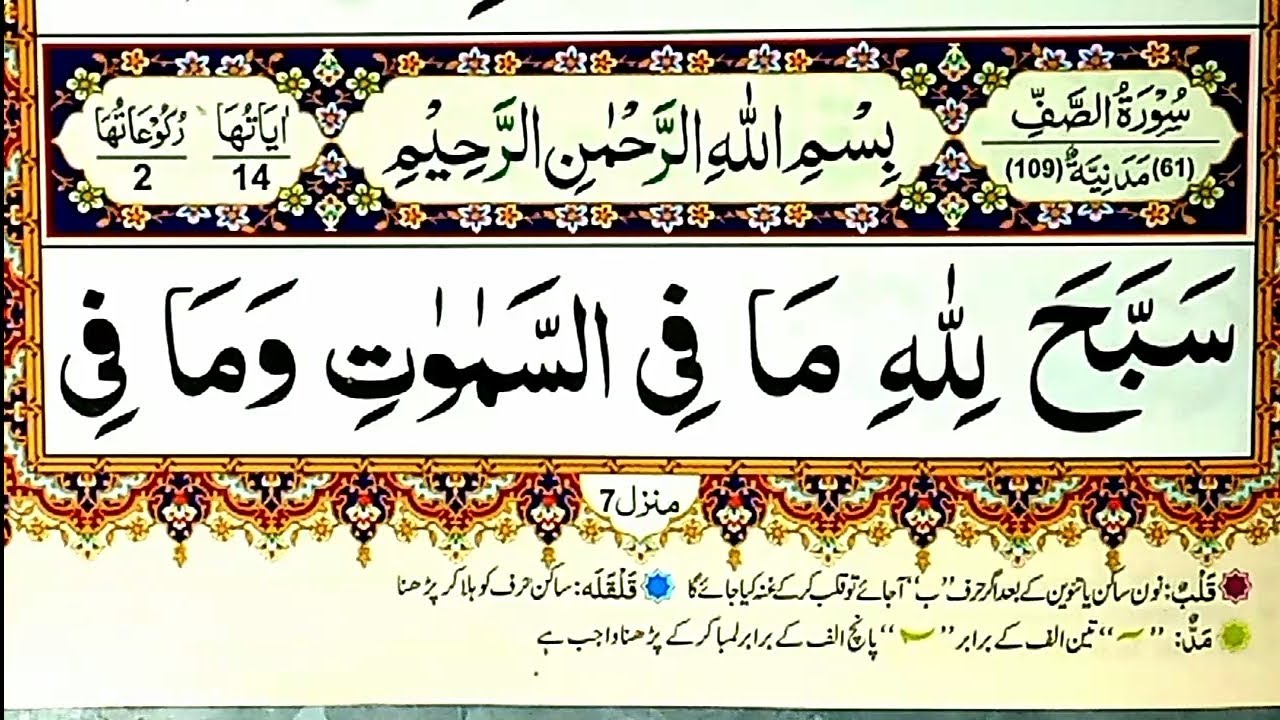 سُوْرَةُ الصَّفِّ
(61) مَدَنِيَّةٌ (109)
بِسْمِ اللّٰهِ الرَّحْمٰنِ الرَّحِيْمِ
اٰيَاتُهَا 14
رُكُوْعَاتُهَا 2
سَبَّحَ لِلّٰهِ مَا فِى السَّمٰوٰتِ وَمَا فِى
منزل 7
قَلْبٌ: نون ساکن یا تنوین کے بعد اگر حرف ”ب“ آجائے تو قلب کر کے غنہ کیا جائے گا قَلْقَلَه: ساکن حرف کو ہلا کر پڑھنا
مَدٌّ: ”~“ تین الف کے برابر ”~“ پانچ الف کے برابر لمبا کر کے پڑھنا واجب ہے